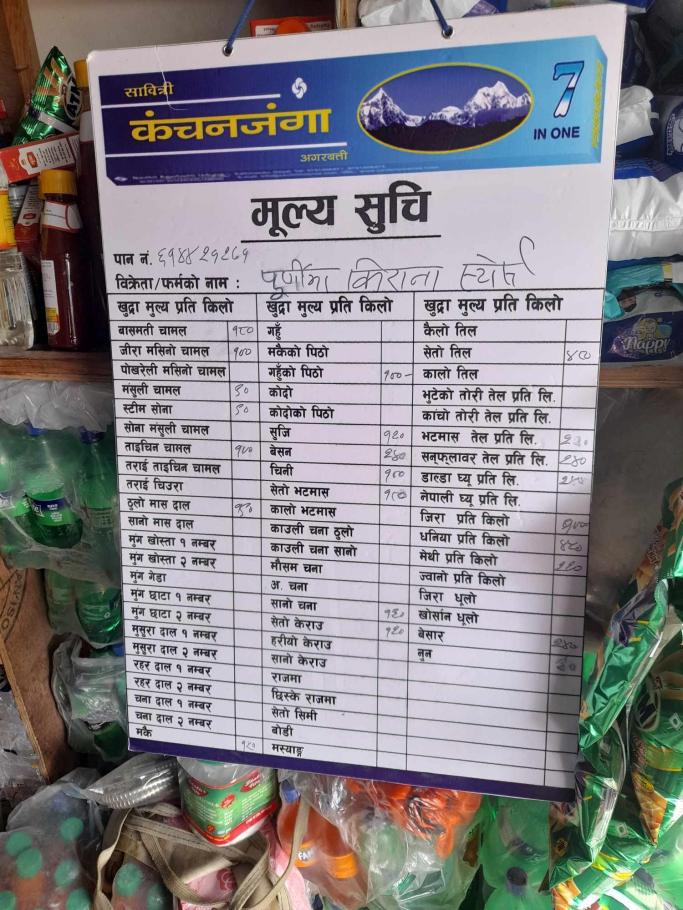 सावित्री
कंचनजंगा
अगरबत्ती
7
IN ONE
मूल्य सुचि
पान नं.
विक्रेता/फर्मको नाम : पूर्णिमा किराना स्टोर्स
खुद्रा मुल्य प्रति किलो खुद्रा मुल्य प्रति किलो खुद्रा मुल्य प्रति किलो
बासमती चामल १८० गहुँ कैलो तिल
जीरा मसिनो चामल १०० मकैको पिठो सेतो तिल
पोखरेली मसिनो चामल गहुँको पिठो १००- कालो तिल
मंसुली चामल ९० कोदो भुटेको तोरी तेल प्रति लि.
स्टीम सोना ९० कोदोको पिठो कांचो तोरी तेल प्रति लि.
सोना मंसुली चामल सुजि १२० भटमास तेल प्रति लि.
ताइचिन चामल बेसन सनफ्लावर तेल प्रति लि. २४०
तराई ताइचिन चामल चिनी डाल्डा घ्यू प्रति लि.
तराई चिउरा सेतो भटमास नेपाली घ्यू प्रति लि.
ठुलो मास दाल कालो भटमास जिरा प्रति किलो
सानो मास दाल काउली चना ठुलो धनिया प्रति किलो
मुंग खोस्ता १ नम्बर काउली चना सानो मेथी प्रति किलो
मुंग खोस्ता २ नम्बर मौसम चना ज्वानो प्रति किलो
मुंग गेडा अ. चना जिरा धूलो
मुंग छाटा १ नम्बर सानो चना खोर्सानि धूलो
मुंग छाटा २ नम्बर सेतो केराउ बेसार
मुसुरा दाल १ नम्बर हरीयो केराउ नुन
मुसुरा दाल २ नम्बर सानो केराउ
रहर दाल १ नम्बर राजमा
रहर दाल २ नम्बर छिस्के राजमा
चना दाल १ नम्बर सेतो सिमी
चना दाल २ नम्बर बोडी
मकै मस्याङ्ग
Happy